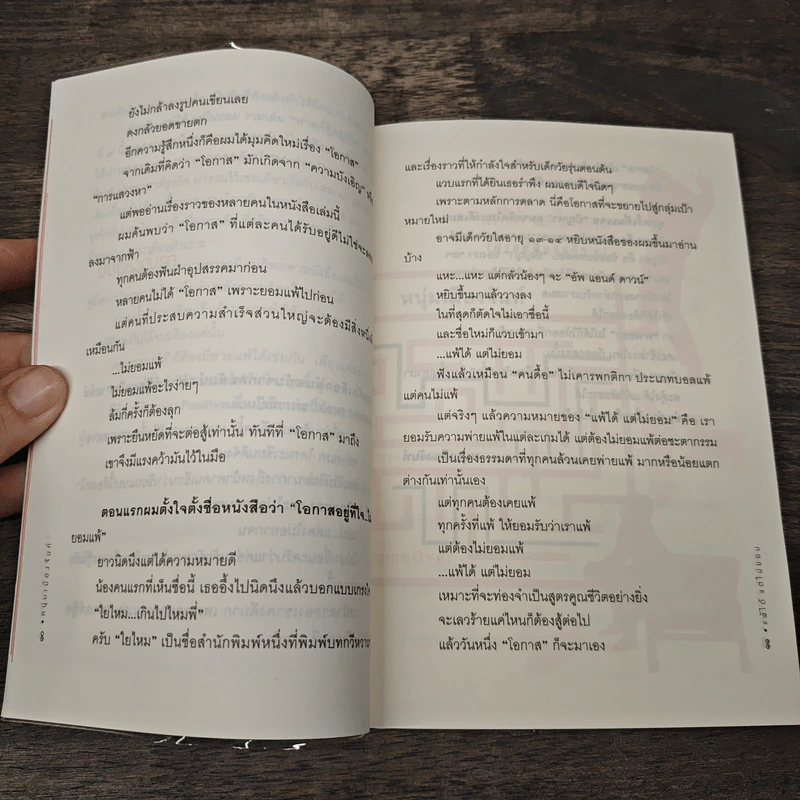 ยังไม่กล้าลงรูปคนเขียนเลย
คงกลัวยอดขายตก
อีกความรู้สึกหนึ่งก็คือผมได้มุมคิดใหม่เรื่อง “โอกาส”
จากเดิมที่คิดว่า “โอกาส” มักเกิดจาก “ความบังเอิญ”
“การแสวงหา”
แต่พออ่านเรื่องราวของหลายคนในหนังสือเล่มนี้
ผมค้นพบว่า “โอกาส” ที่แต่ละคนได้รับอยู่ดีไม่ใช่จะ
ลงมาจากฟ้า
ทุกคนต้องฟันฝ่าอุปสรรคมาก่อน
หลายคนไม่ได้ “โอกาส” เพราะยอมแพ้ไปก่อน
แต่คนที่ประสบความสำเร็จส่วนใหญ่จะต้องมีสิ่งหนึ่ง
เหมือนกัน
...ไม่ยอมแพ้
ไม่ยอมแพ้อะไรง่ายๆ
ล้มกี่ครั้งก็ต้องลุก
เพราะยืนหยัดที่จะต่อสู้เท่านั้น ทันทีที่ “โอกาส” มาถึง
เขาจึงมีแรงคว้ามันไว้ในมือ
ตอนแรกผมตั้งใจตั้งชื่อหนังสือว่า “โอกาสอยู่ที่ใจ
ยอมแพ้”
ยาวนิดนึงแต่ได้ความหมายดี
น้องคนแรกที่เห็นชื่อนี้ เธออึ้งไปนิดนึงแล้วบอกแบบเกรงใจ
“ใยไหม...เกินไปไหมพี่”
ครับ “ใยไหม” เป็นชื่อสำนักพิมพ์หนึ่งที่พิมพ์บทกวีหวาน
หนุ่มเมืองจันท์
และเรื่องราวที่ให้กำลังใจสำหรับเด็กวัยรุ่นตอนต้น
แวบแรกที่ได้ยินเธอรำพึง ผมแอบดีใจนิดๆ
เพราะตามหลักการตลาด นี่คือโอกาสที่จะขยายไปสู่กลุ่มเป้า
หมายใหม่
อาจมีเด็กวัยใสอายุ ๑๓-๑๔ หยิบหนังสือของผมขึ้นมาอ่าน
บ้าง
แหะ...แหะ แต่กลัวน้องๆ จะ “อัพ แอนด์ ดาวน์”
หยิบขึ้นมาแล้ววางลง
ในที่สุดก็ตัดใจไม่เอาชื่อนี้
และชื่อใหม่ก็แวบเข้ามา
...แพ้ได้ แต่ไม่ยอม
ฟังแล้วเหมือน “คนดื้อ” ไม่เคารพกติกา ประเภทบอลแพ้
แต่คนไม่แพ้
แต่จริงๆ แล้วความหมายของ “แพ้ได้ แต่ไม่ยอม” คือ เรา
ยอมรับความพ่ายแพ้ในแต่ละเกมได้ แต่ต้องไม่ยอมแพ้ต่อชะตากรรม
เป็นเรื่องธรรมดาที่ทุกคนล้วนเคยพ่ายแพ้ มากหรือน้อยแตก
ต่างกันเท่านั้นเอง
แต่ทุกคนต้องเคยแพ้
ทุกครั้งที่แพ้ ให้ยอมรับว่าเราแพ้
แต่ต้องไม่ยอมแพ้
...แพ้ได้ แต่ไม่ยอม
เหมาะที่จะท่องจำเป็นสูตรคูณชีวิตอย่างยิ่ง
จะเลวร้ายแค่ไหนก็ต้องสู้ต่อไป
แล้ววันหนึ่ง “โอกาส” ก็จะมาเอง
แพ้ได้ แต่ไม่ยอม